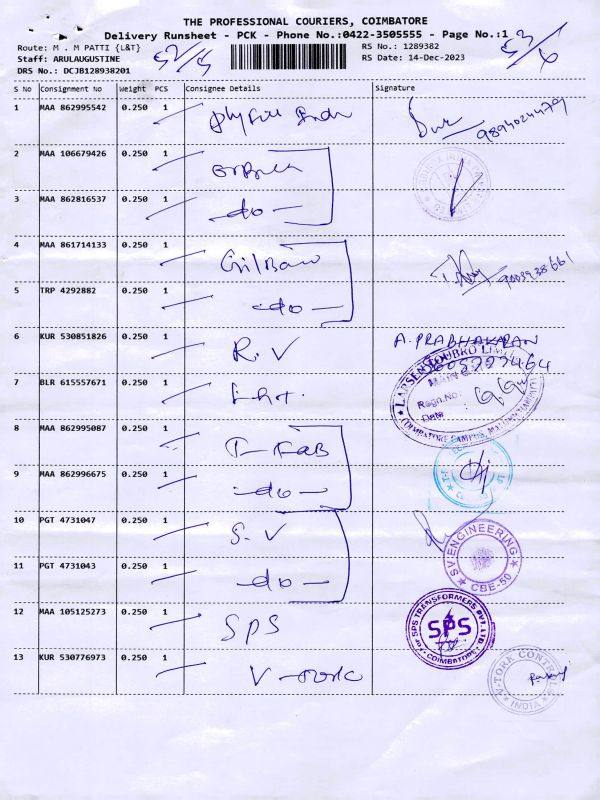 THE PROFESSIONAL COURIERS, COIMBATORE
Delivery Runsheet - PCK - Phone No.:0422-3505555 - Page No.:1
Route: M . M PATTI {L&T} 52/5 RS No.: 1289382 53/6
Staff: ARULAUGUSTINE RS Date: 14-Dec-2023
DRS No.: DCJB128938201
S No Consignment No Weight PCS Consignee Details Signature
1 MAA 862995542 0.250 1 9894024479
2 MAA 106679426 0.250 1
3 MAA 862816537 0.250 1 -do-
4 MAA 861714133 0.250 1
5 TRP 4292882 0.250 1 -do-
6 KUR 530851826 0.250 1 R.V A. PRABHAKARAN
LARSEN & TOUBRO LIMITED
Regn.No:
Date :
7 BLR 615557671 0.250 1
8 MAA 862995087 0.250 1 T-FAB
9 MAA 862996675 0.250 1 -do-
10 PGT 4731047 0.250 1 S.V
SV ENGINEERING
CBE-50
11 PGT 4731043 0.250 1 -do-
12 MAA 105125273 0.250 1 SPS
For SPS TRANSFORMERS PVT. LTD.
SPS
COIMBATORE
13 KUR 530776973 0.250 1 V-TORK
V-TORK CONTROLS
INDIA